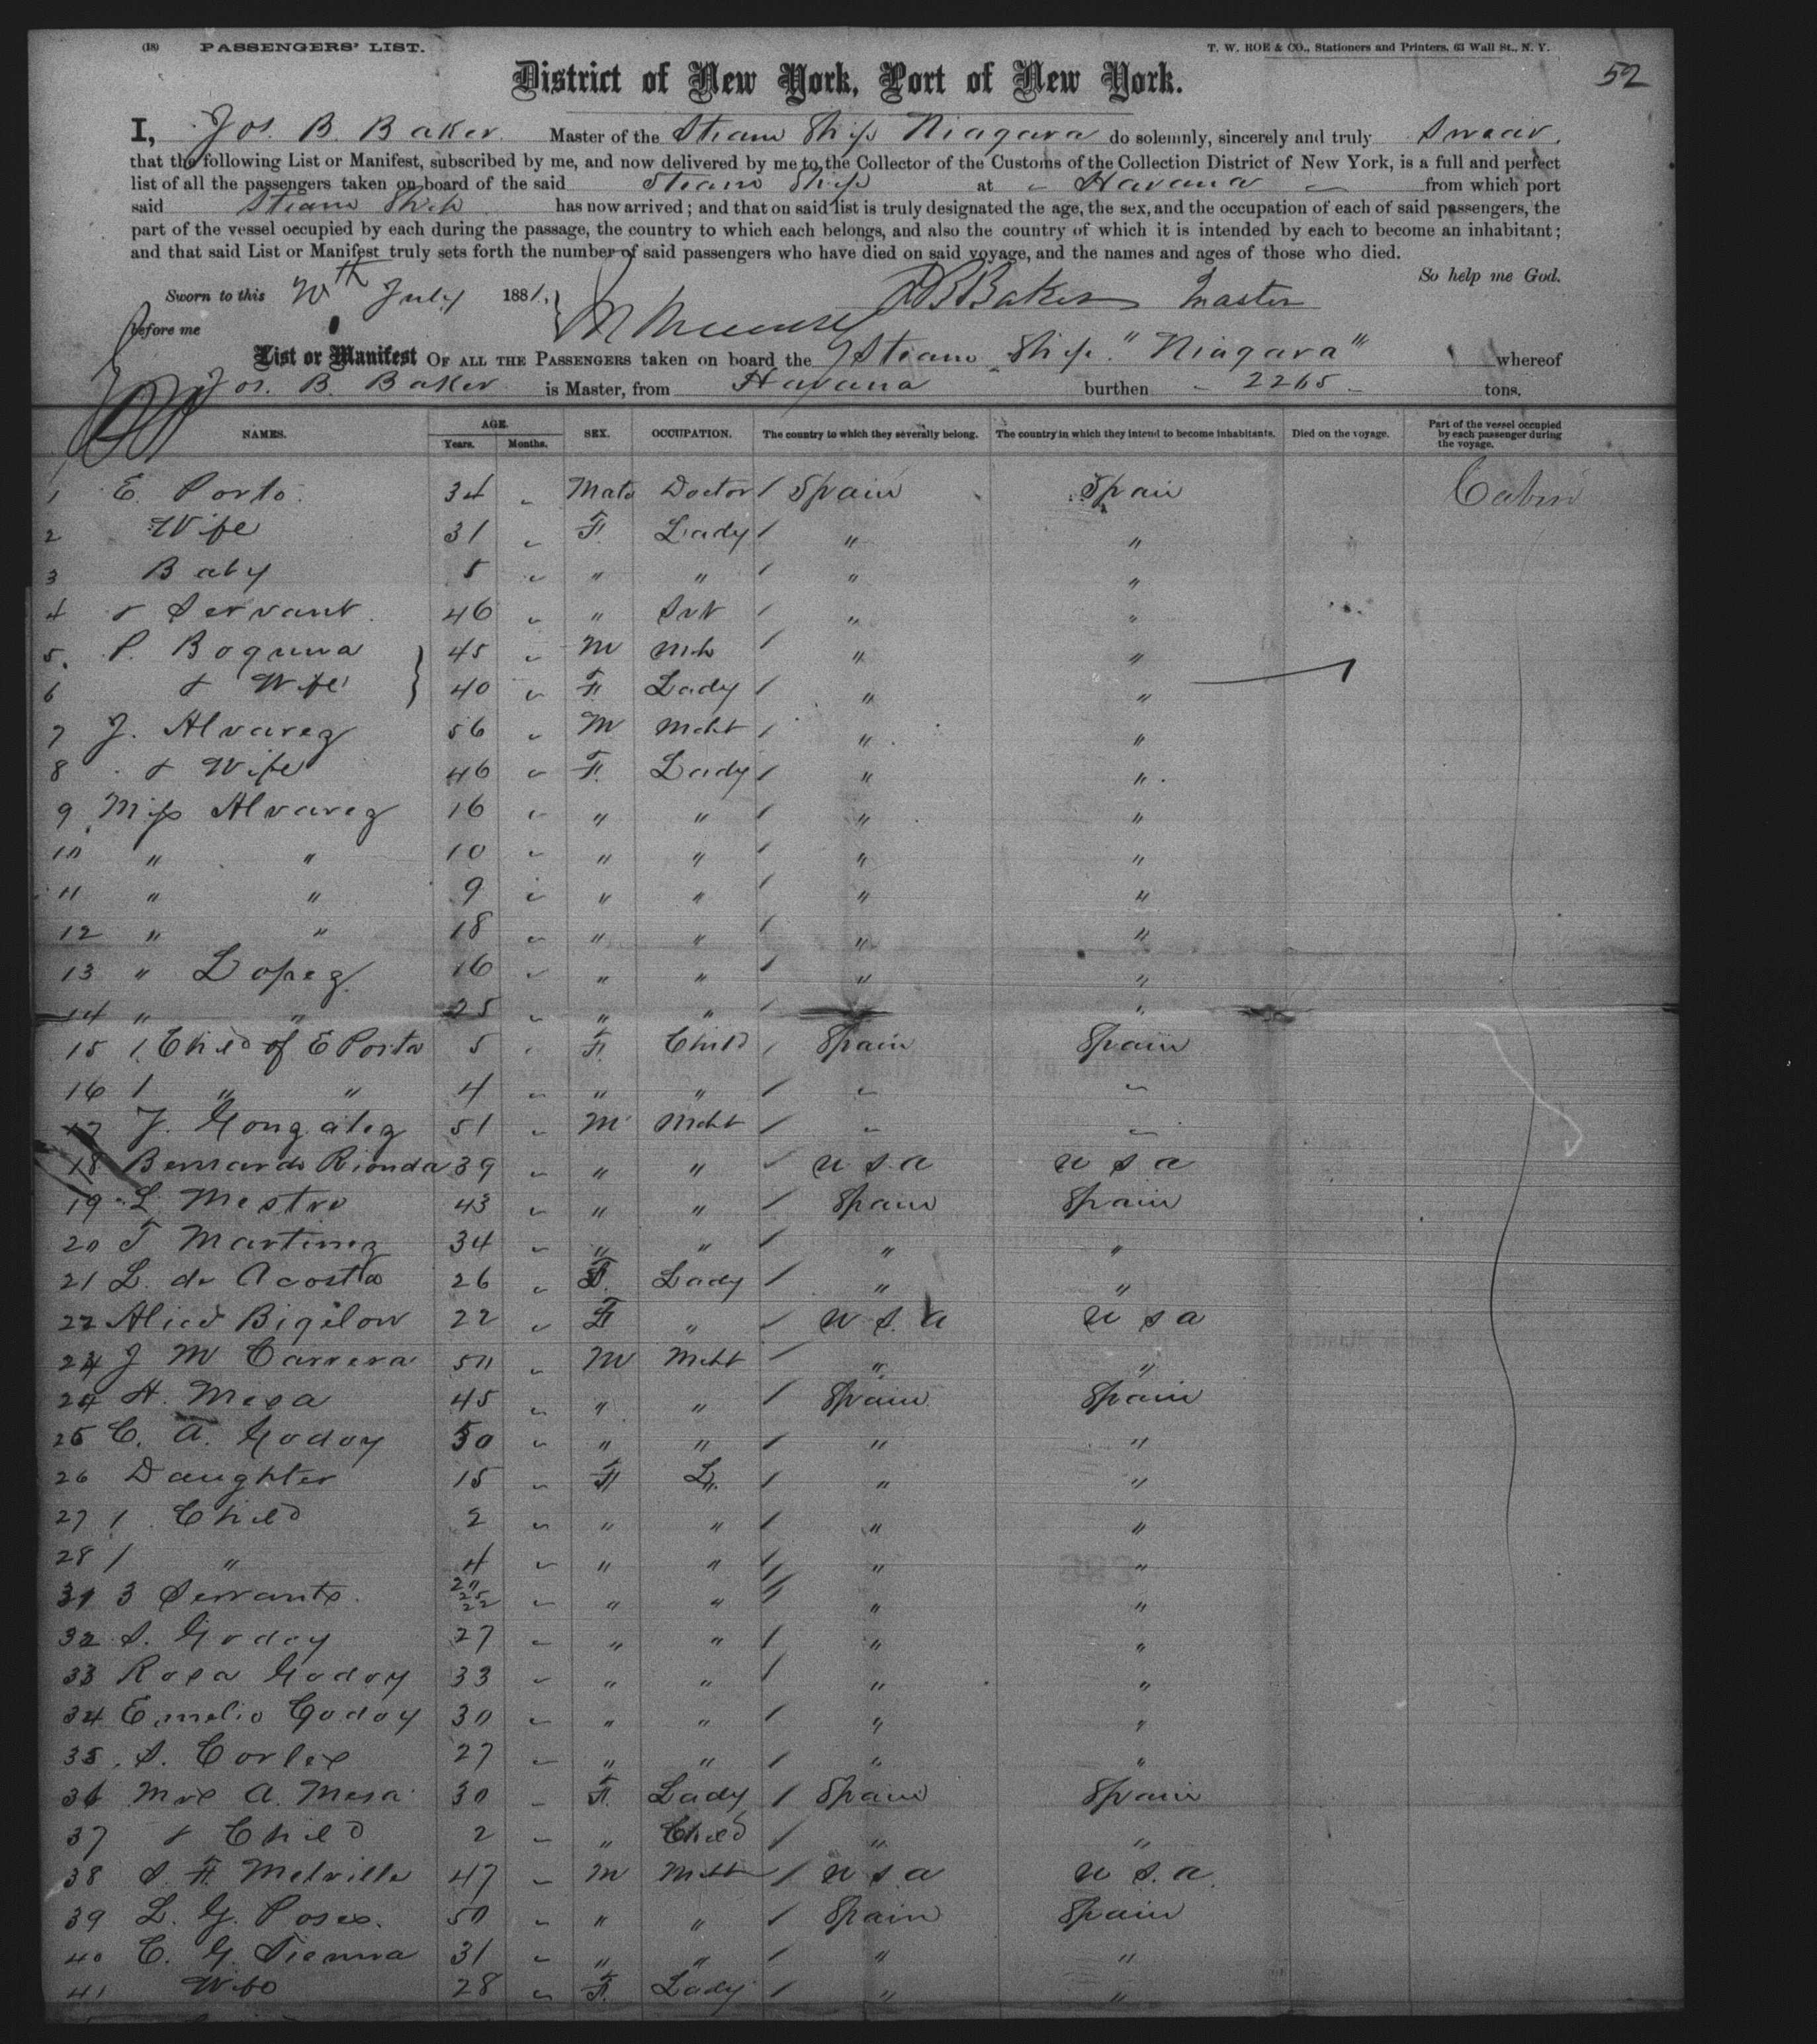 (18) PASSENGERS' LIST. T. W. ROE & CO., Stationers and Printers, 63 Wall St., N. Y.
52
District of New York, Port of New York.
I, Jos. B. Baker Master of the Steam Ship Niagara do solemnly, sincerely and truly Swear,
that the following List or Manifest, subscribed by me, and now delivered by me to the Collector of the Customs of the Collection District of New York, is a full and perfect
list of all the passengers taken on board of the said Steam Ship at Havana from which port
said Steam Ship has now arrived; and that on said list is truly designated the age, the sex, and the occupation of each of said passengers, the
part of the vessel occupied by each during the passage, the country to which each belongs, and also the country of which it is intended by each to become an inhabitant;
and that said List or Manifest truly sets forth the number of said passengers who have died on said voyage, and the names and ages of those who died.
So help me God.
Sworn to this th July 1881, JB Baker Master
before me
List or Manifest OF ALL THE PASSENGERS taken on board the Steam Ship "Niagara" whereof
Jos. B. Baker is Master, from Havana burthen - 2265 - tons.
NAMES. AGE. Years. Months. SEX. OCCUPATION. The country to which they severally belong. The country in which they intend to become inhabitants. Died on the voyage. Part of the vessel occupied by each passenger during the voyage.
1 E. Porto. 34 " Male Doctor / Spain Spain Cabin
2 Wife 31 " F. Lady / " "
3 Baby 5 " " " / " "
4 & Servant. 46 " " Svt / " "
5. P. 45 " M / " "
6 & Wife 40 " F. Lady / " "
7 J. Alvarez 56 " M Mcht / " "
8 & Wife 46 " F. Lady / " "
9 Miss Alvarez 16 " " " / " "
10 " " 10 " " " / " "
11 " " 9 " " " / " "
12 " " 18 " " " / " "
13 " Lopez 16 " " " / " "
14 " " 25 " " " / " "
15 1 Child of E Porto 5 " F. Child / Spain Spain
16 1 " " 4 " " " / " "
17 J. Gonzalez 51 " M Mcht / " "
18 Bernardo Rionda 39 " " " / U S. A U S A
19 L. Mestre 43 " " " / Spain Spain
20 F Martinez 34 " " " / " "
21 L. de Acosta 26 " F. Lady / " "
22 Alice Bigelow 22 " F " / U S. A U S A
23 J M Carrera 50 " M Mcht / " "
24 H. Mesa 45 " " " / Spain Spain
25 C. A. Godoy 50 " " " / " "
26 Daughter 15 " F L. / " "
27 1 Child 2 " " " / " "
28 1 " 4 " " " / " "
31 3 Servants. 20 25 22 " " " /// " "
32 S. Godoy 27 " " " / " "
33 Rosa Godoy 33 " " " / " "
34 Emelio Godoy 30 " " " / " "
35 S. Cortes 27 " " " / " "
36 Mrs A. Mesa 30 " F. Lady / Spain Spain
37 & Child 2 " " Child / " "
38 S. F. Melville 47 " M Mcht / U S. A U S. A.
39 L. G. 50 " " " / Spain Spain
40 C. G. 31 " " " / " "
41 Wife 28 " F. Lady / " "